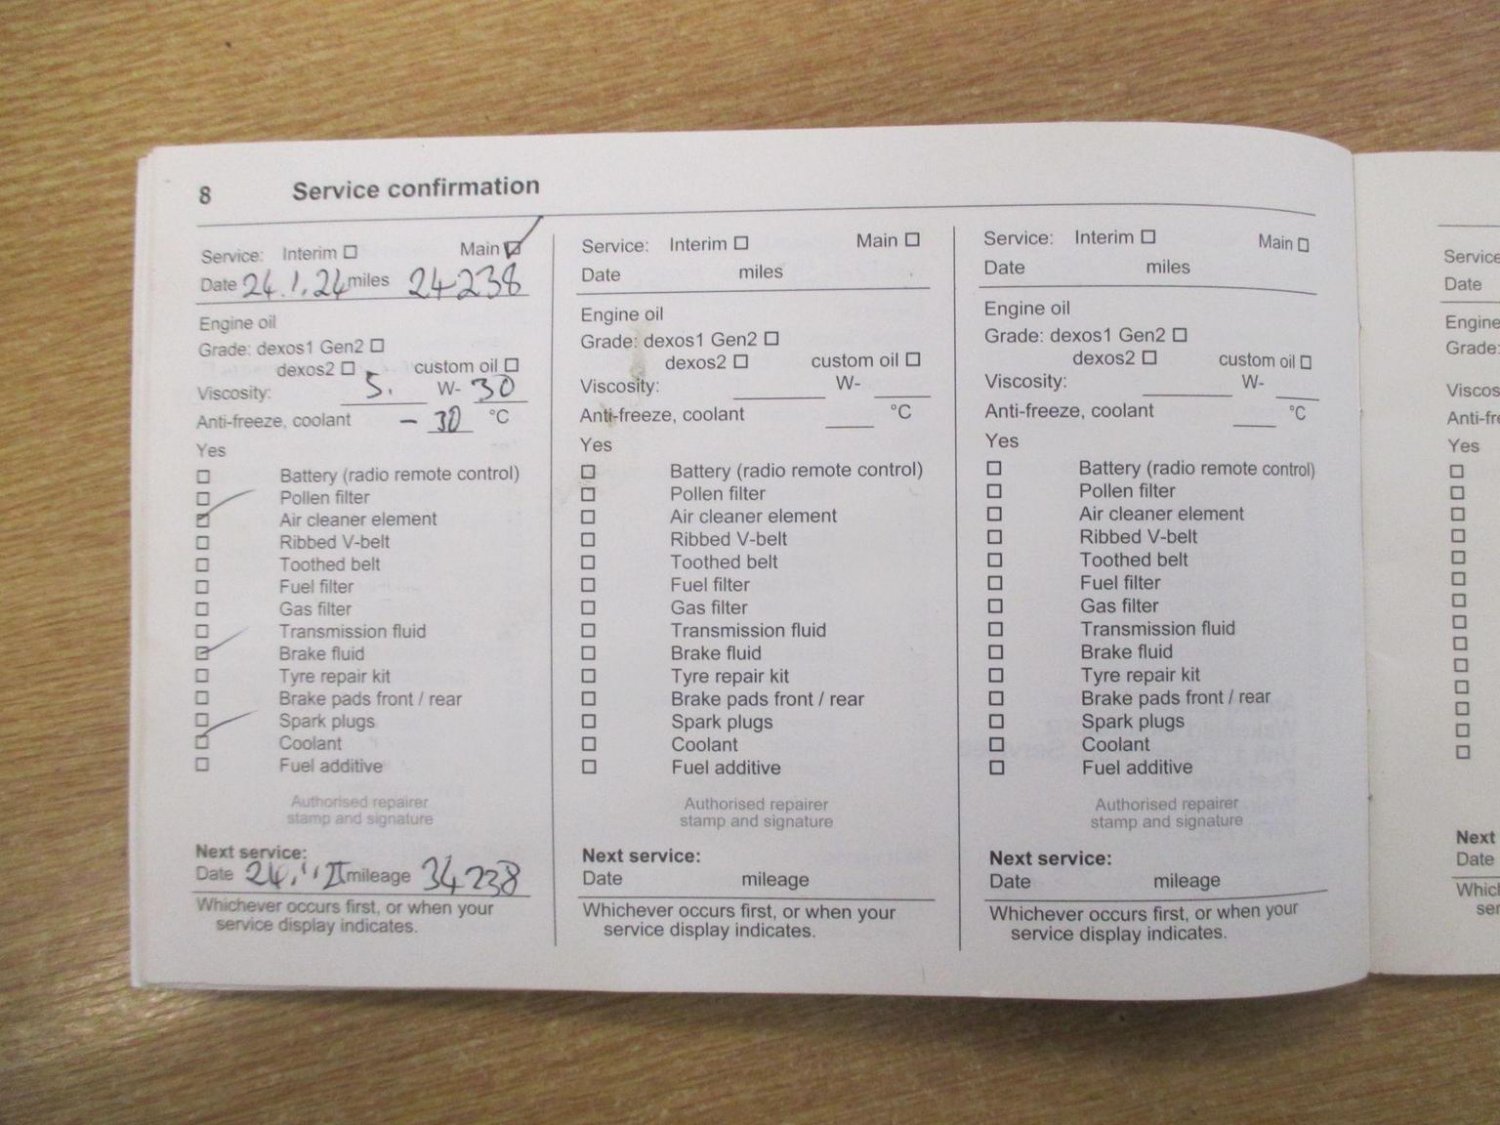 8 Service confirmation
Service: Interim ☐ Main ☑
Date 24.1.24 miles 24238
Engine oil
Grade: dexos1 Gen2 ☐
dexos2 ☐ custom oil ☐
Viscosity: 5. W- 30
Anti-freeze, coolant – 30 °C
Yes
☐ Battery (radio remote control)
☐ Pollen filter
☑ Air cleaner element
☐ Ribbed V-belt
☐ Toothed belt
☐ Fuel filter
☐ Gas filter
☐ Transmission fluid
☑ Brake fluid
☐ Tyre repair kit
☐ Brake pads front / rear
☐ Spark plugs
☑ Coolant
☐ Fuel additive
Authorised repairer
stamp and signature
Next service:
Date mileage 34238
Whichever occurs first, or when your
service display indicates.
Service: Interim ☐ Main ☐
Date miles
Engine oil
Grade: dexos1 Gen2 ☐
dexos2 ☐ custom oil ☐
Viscosity: W-
Anti-freeze, coolant °C
Yes
☐ Battery (radio remote control)
☐ Pollen filter
☐ Air cleaner element
☐ Ribbed V-belt
☐ Toothed belt
☐ Fuel filter
☐ Gas filter
☐ Transmission fluid
☐ Brake fluid
☐ Tyre repair kit
☐ Brake pads front / rear
☐ Spark plugs
☐ Coolant
☐ Fuel additive
Authorised repairer
stamp and signature
Next service:
Date mileage
Whichever occurs first, or when your
service display indicates.
Service: Interim ☐ Main ☐
Date miles
Engine oil
Grade: dexos1 Gen2 ☐
dexos2 ☐ custom oil ☐
Viscosity: W-
Anti-freeze, coolant °C
Yes
☐ Battery (radio remote control)
☐ Pollen filter
☐ Air cleaner element
☐ Ribbed V-belt
☐ Toothed belt
☐ Fuel filter
☐ Gas filter
☐ Transmission fluid
☐ Brake fluid
☐ Tyre repair kit
☐ Brake pads front / rear
☐ Spark plugs
☐ Coolant
☐ Fuel additive
Authorised repairer
stamp and signature
Next service:
Date mileage
Whichever occurs first, or when your
service display indicates.
Service
Date
Engine
Grade:
Viscos
Anti-fre
Yes
Next
Date
Which
ser